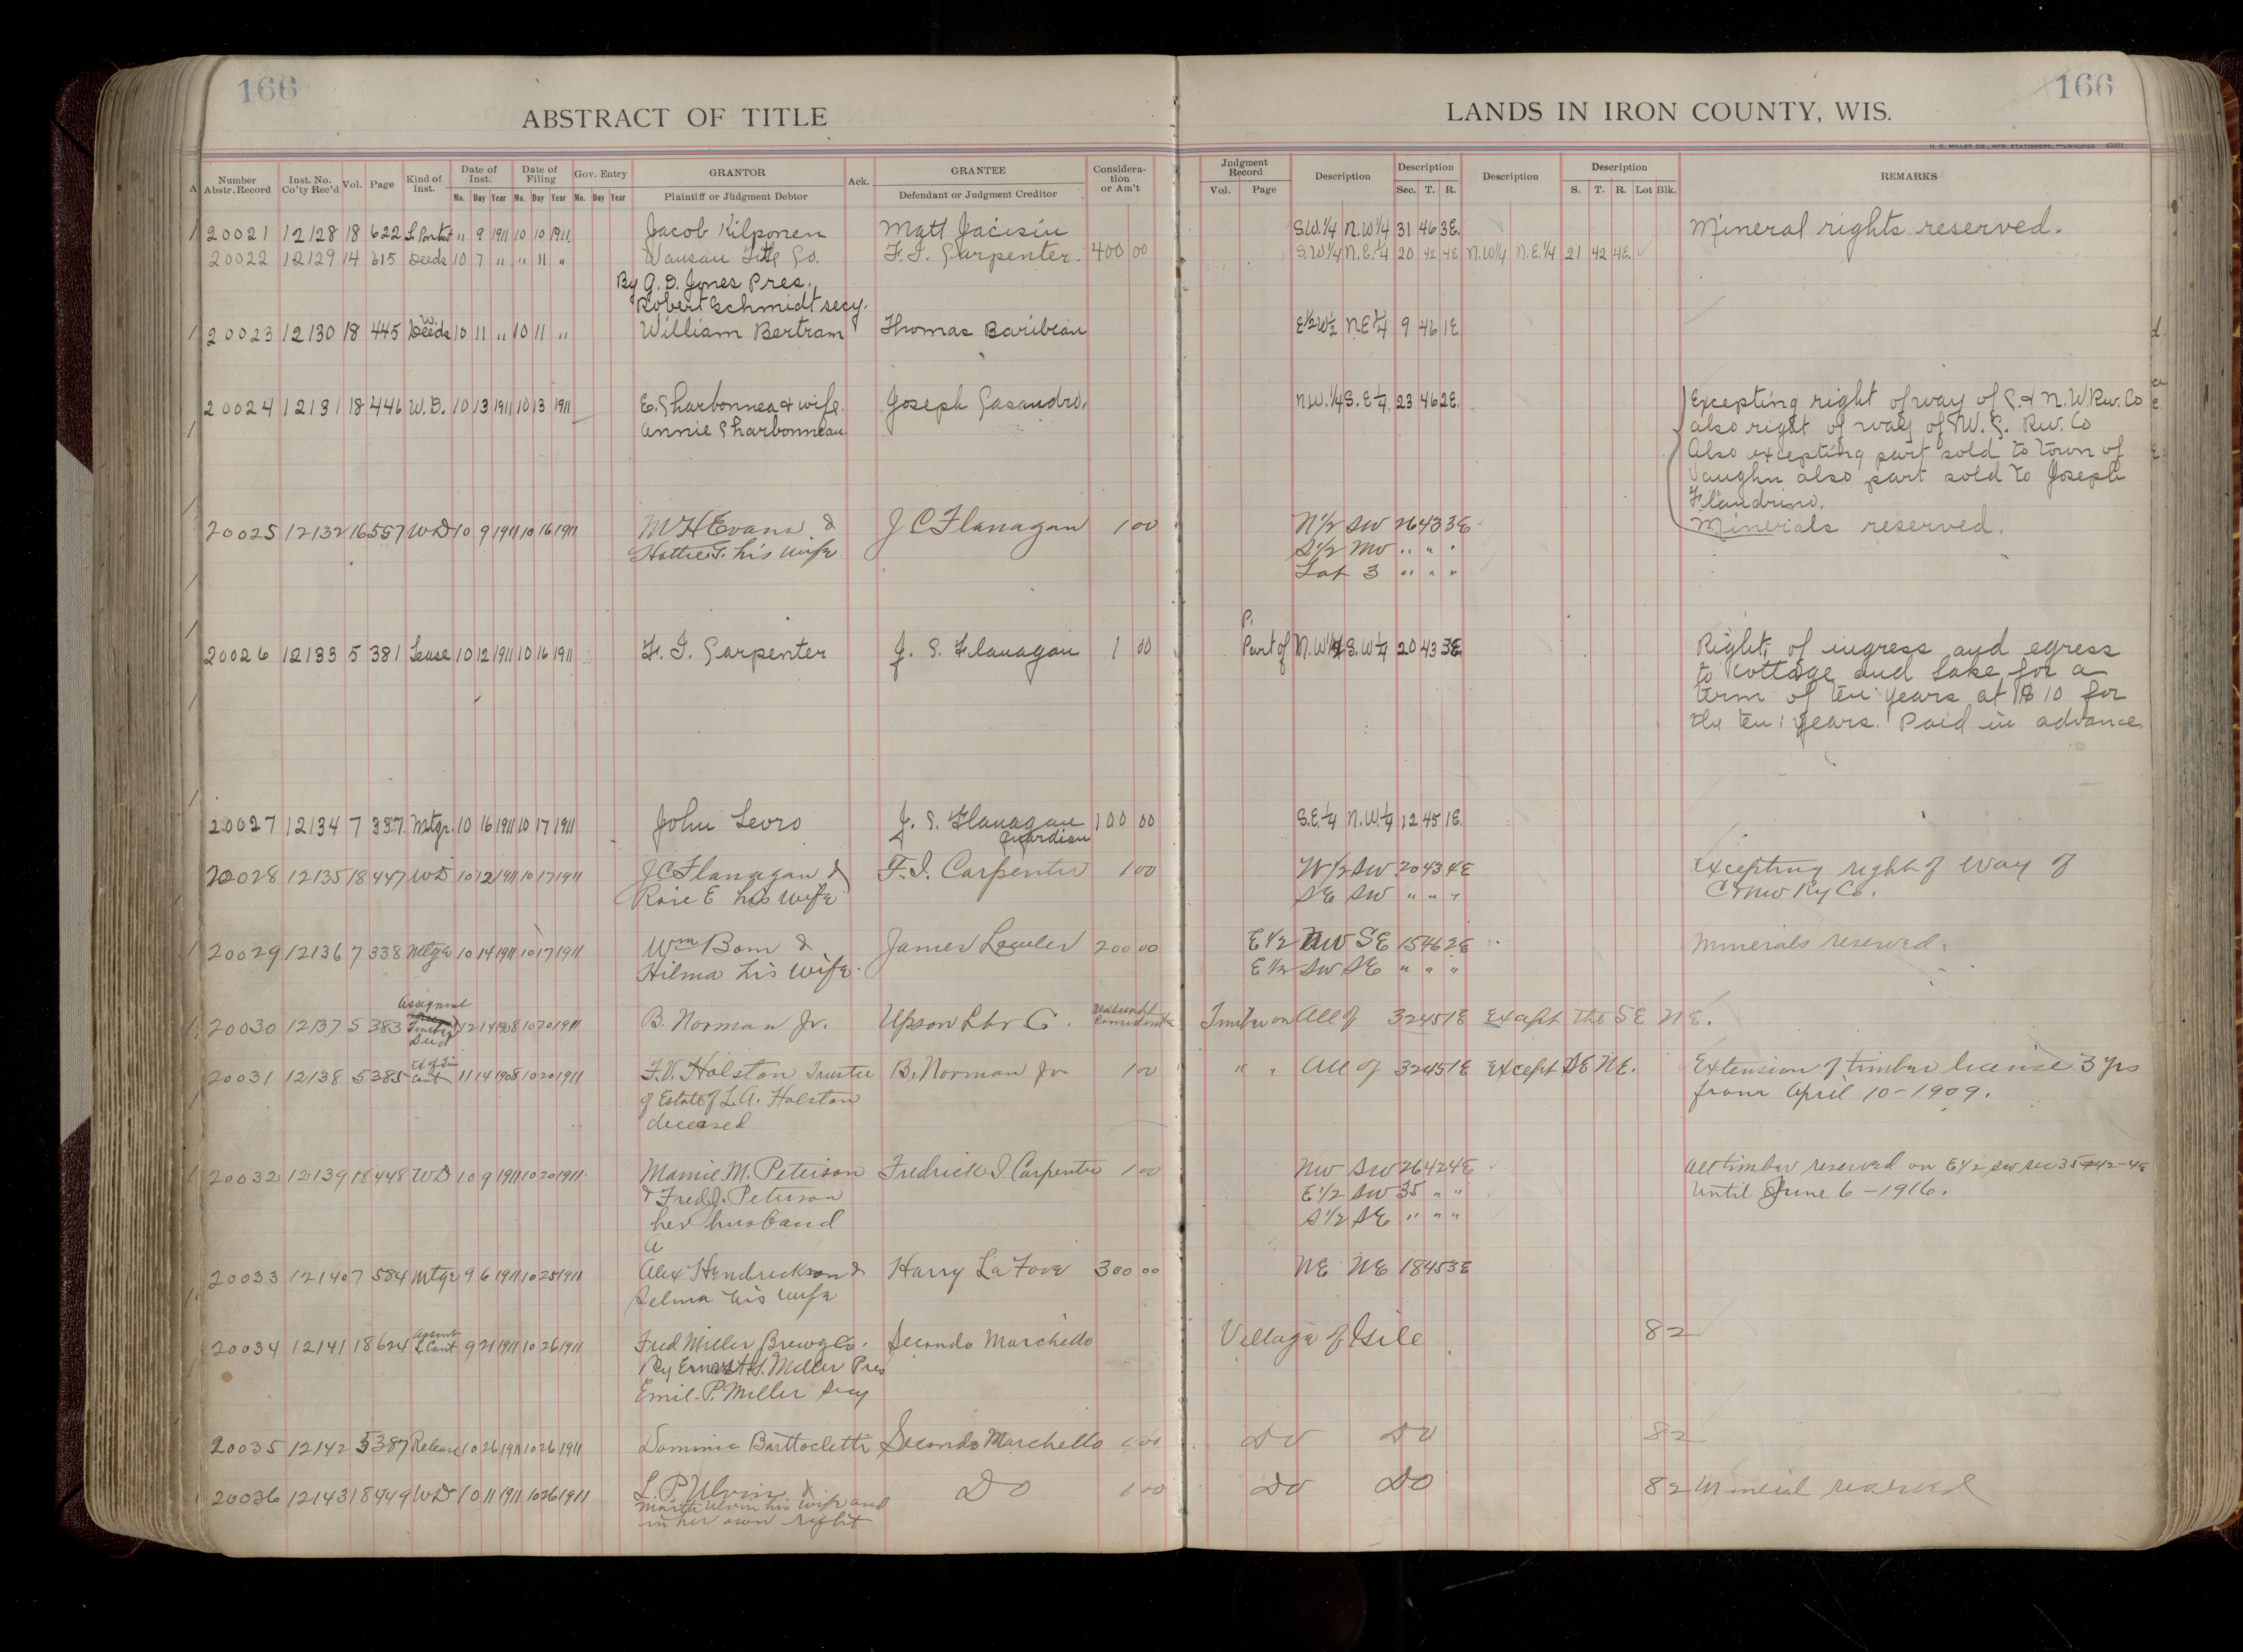 166
166
ABSTRACT OF TITLE
LANDS IN IRON COUNTY, WIS.
H. G. MILLER CO., MFG. STATIONERS, MILWAUKEE
Number Abstr. Record Inst. No. Co'ty Rec'd Vol. Page Kind of Inst. Date of Inst. Date of Filing Gov. Entry GRANTOR Ack. GRANTEE Consideration or Am't Judgment Record Description Description Description Description REMARKS
Mo. Day Year Mo. Day Year No. Day Year Plaintiff or Judgment Debtor Defendant or Judgment Creditor Vol. Page Sec. T. R. S. T. R. Lot Blk.
20021 12128 18 622 " 9 1911 10 10 1911 Jacob Kilponen Matt S.W.1/4 N.W1/4 31 46 3E. Mineral rights reserved.
20022 12129 14 615 Deeds 10 7 " " 11 " Wausau Title Co. F. I. Carpenter. 400 00 S.W1/4 N.E.1/4 20 42 4E N.W1/4 N.E.1/4 21 42 4E.
By A. D. Jones Pres.
Robert Schmidt secy.
20023 12130 18 445 W. Deeds 10 11 " 10 11 " William Bertram Thomas Baribeau E1/2 W1/2 N.E1/4 9 46 1E
20024 12131 18 446 W.D. 10 13 1911 10 13 1911 E. Charbonneau & wife. Joseph Casandro. N.W.1/4 S.E1/4 23 46 2E. Excepting right of way of C. & N.W. Rw. Co
Annie Charbonneau. also right of way of W. C. Rw. Co
Also excepting part sold to town of
Vaughn also part sold to Joseph
Flandrino.
Minerals reserved.
20025 12132 16 557 WD 10 9 1911 10 16 1911 M H Evans & J C Flanagan 1 00 N1/2 SW 26 43 3E
Hattie F. his wife S1/2 NW " " "
Lot 3 " " "
P.
20026 12133 5 381 Lease 10 12 1911 10 16 1911 F. I. Carpenter J. C. Flanagan 1 00 Part of N.W1/4 S.W1/4 20 43 3E. Right of ingress and egress
to cottage and Lake for a
term of ten years at $10 for
the ten years. Paid in advance.
20027 12134 7 337 Mtge. 10 16 1911 10 17 1911 John Levro J. C. Flanagan 100 00 S.E.1/4 N.W.1/4 12 45 1E.
Guardian
20028 12135 18 447 WD 10 12 1911 10 17 1911 J C Flanagan & F. I. Carpenter 1 00 W1/2 SW 20 43 4E Excepting right of Way of
Rose E his wife SE SW " " " C & NW Ry Co.
20029 12136 7 338 Mtge 10 14 1911 10 17 1911 Wm Bom & James Lawler 200 00 E1/2 NW SE 15 46 2E Minerals reserved.
Hilma his wife. E1/2 SW SE " " "
20030 12137 5 383 Assignmt Timber Deed 12 14 1908 10 20 1911 B. Norman Jr. Upson Lbr Co. Timber on All of 32 45 1E Except the SE NE.
20031 12138 5 385 11 14 1908 10 20 1911 F. V. Holston Trustee B. Norman Jr 1 00 " " All of 32 45 1E Except SE NE. Extension of timber license 3 yrs
of Estate of L. A. Holston from April 10-1909.
deceased
20032 12139 18 448 WD 10 9 1911 10 20 1911 Mamie M. Peterson Fredrick I Carpenter 1 00 NW SW 26 42 4E All timber reserved on E1/2 SW sec 35-42-4E
& Fred J. Peterson E1/2 SW 35 " " Until June 6-1916.
her husband S1/2 SE " " "
20033 12140 7 584 Mtge 9 6 1911 10 25 1911 Alex Hendrickson & Harry La Fave 300 00 NE NE 18 45 3E
Selma his wife
20034 12141 18 624 Assmt L Cont 9 21 1911 10 26 1911 Fred Miller Brewg Co. Secondo Marchello Village of Gile 82
By Ernest G. Miller Pres
Emil P. Miller Secy
20035 12142 5 387 Release 10 26 1911 10 26 1911 Dominic Secondo Marchello 1 00 Do Do 82
20036 12143 18 449 WD 10 11 1911 10 26 1911 L. P. Ulvin & Do 1 00 Do Do 82 Mineral reserved
Martha Ulvin his wife and
in her own right